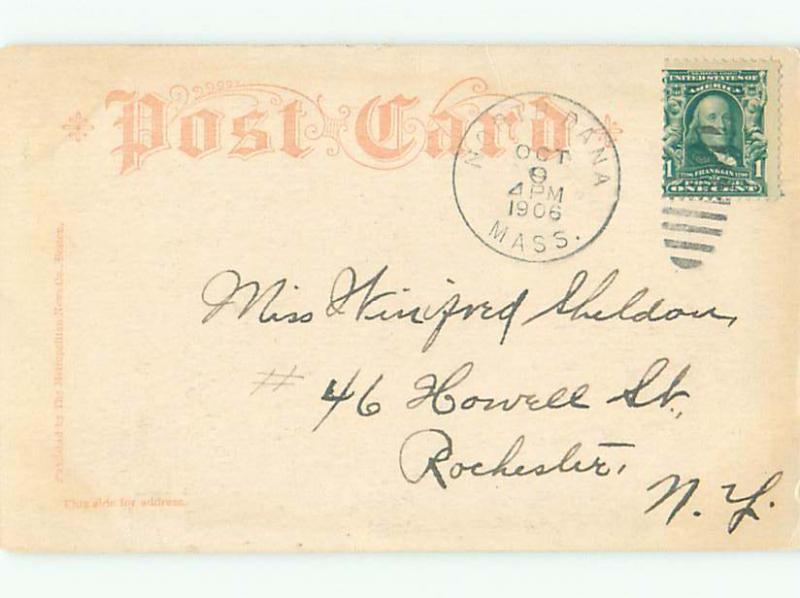 Post Card
NORTH DANA
OCT
9
4 PM
1906
MASS.
SERIES 1902
UNITED STATES OF
AMERICA
1 FRANKLIN 1
POSTAGE
ONE CENT
Miss Winifred Sheldon,
# 46 Howell St.,
Rochester,
N. Y.
Published by The Metropolitan News Co., Boston.
This side for address.